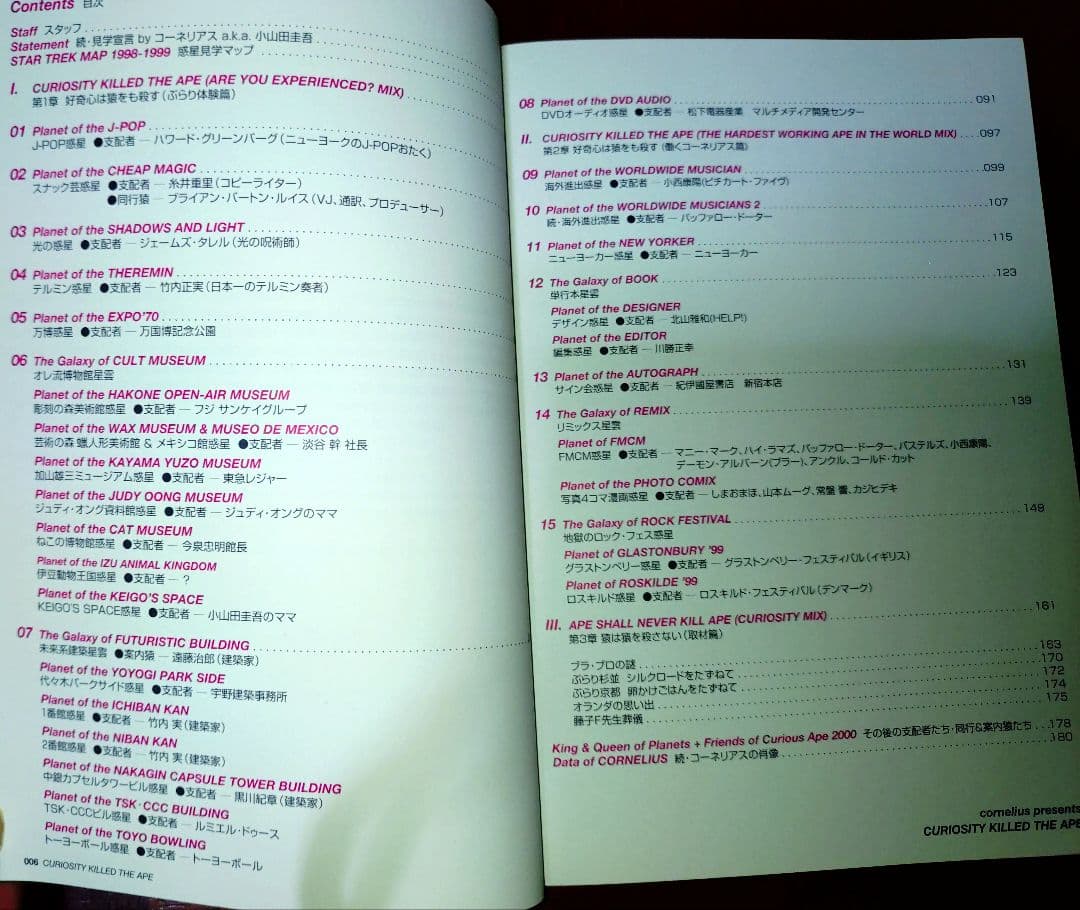 Contents 目次
Staff スタッフ
Statement 続・見学宣言 by コーネリアス a.k.a. 小山田圭吾
STAR TREK MAP 1998-1999 惑星見学マップ
I. CURIOSITY KILLED THE APE (ARE YOU EXPERIENCED? MIX)
第1章 好奇心は猿をも殺す(ぶらり体験篇)
01 Planet of the J-POP
J-POP惑星 ●支配者 — ハワード・グリーンバーグ(ニューヨークのJ-POPおたく)
02 Planet of the CHEAP MAGIC
スナック芸惑星 ●支配者 — 糸井重里(コピーライター)
●同行猿 — ブライアン・バートン・ルイス(VJ、通訳、プロデューサー)
03 Planet of the SHADOWS AND LIGHT
光の惑星 ●支配者 — ジェームズ・タレル(光の呪術師)
04 Planet of the THEREMIN
テルミン惑星 ●支配者 — 竹内正実(日本一のテルミン奏者)
05 Planet of the EXPO'70
万博惑星 ●支配者 — 万国博記念公園
06 The Galaxy of CULT MUSEUM
オレ流博物館星雲
Planet of the HAKONE OPEN-AIR MUSEUM
彫刻の森美術館惑星 ●支配者 — フジ サンケイグループ
Planet of the WAX MUSEUM & MUSEO DE MEXICO
芸術の森 蝋人形美術館 & メキシコ館惑星 ●支配者 — 淡谷 幹 社長
Planet of the KAYAMA YUZO MUSEUM
加山雄三ミュージアム惑星 ●支配者 — 東急レジャー
Planet of the JUDY OONG MUSEUM
ジュディ・オング資料館惑星 ●支配者 — ジュディ・オングのママ
Planet of the CAT MUSEUM
ねこの博物館惑星 ●支配者 — 今泉忠明館長
Planet of the IZU ANIMAL KINGDOM
伊豆動物王国惑星 ●支配者 — ?
Planet of the KEIGO'S SPACE
KEIGO'S SPACE惑星 ●支配者 — 小山田圭吾のママ
07 The Galaxy of FUTURISTIC BUILDING
未来系建築星雲 ●案内猿 — 遠藤治郎(建築家)
Planet of the YOYOGI PARK SIDE
代々木パークサイド惑星 ●支配者 — 宇野建築事務所
Planet of the ICHIBAN KAN
1番館惑星 ●支配者 — 竹内 実(建築家)
Planet of the NIBAN KAN
2番館惑星 ●支配者 — 竹内 実(建築家)
Planet of the NAKAGIN CAPSULE TOWER BUILDING
中銀カプセルタワービル惑星 ●支配者 — 黒川紀章(建築家)
Planet of the TSK・CCC BUILDING
TSK・CCCビル惑星 ●支配者 — ルミエル・ドゥース
Planet of the TOYO BOWLING
トーヨーボール惑星 ●支配者 — トーヨーボール
006 CURIOSITY KILLED THE APE
08 Planet of the DVD AUDIO 091
DVDオーディオ惑星 ●支配者 — 松下電器産業 マルチメディア開発センター
II. CURIOSITY KILLED THE APE (THE HARDEST WORKING APE IN THE WORLD MIX) 097
第2章 好奇心は猿をも殺す(働くコーネリアス篇)
09 Planet of the WORLDWIDE MUSICIAN 099
海外進出惑星 ●支配者 — 小西康陽(ピチカート・ファイヴ)
10 Planet of the WORLDWIDE MUSICIANS 2 107
続・海外進出惑星 ●支配者 — バッファロー・ドーター
11 Planet of the NEW YORKER 115
ニューヨーカー惑星 ●支配者 — ニューヨーカー
12 The Galaxy of BOOK 123
単行本星雲
Planet of the DESIGNER
デザイン惑星 ●支配者 — 北山雅和(HELP!)
Planet of the EDITOR
編集惑星 ●支配者 — 川勝正幸
13 Planet of the AUTOGRAPH 131
サイン会惑星 ●支配者 — 紀伊國屋書店 新宿本店
14 The Galaxy of REMIX 139
リミックス星雲
Planet of FMCM
FMCM惑星 ●支配者 — マニー・マーク、ハイ・ラマズ、バッファロー・ドーター、パステルズ、小西康陽、
デーモン・アルバーン(ブラー)、アンクル、コールド・カット
Planet of the PHOTO COMIX
写真4コマ漫画惑星 ●支配者 — しまおまほ、山本ムーグ、常盤 響、カジヒデキ
15 The Galaxy of ROCK FESTIVAL 149
地獄のロック・フェス惑星
Planet of GLASTONBURY '99
グラストンベリー惑星 ●支配者 — グラストンベリー・フェスティバル(イギリス)
Planet of ROSKILDE '99
ロスキルド惑星 ●支配者 — ロスキルド・フェスティバル(デンマーク)
III. APE SHALL NEVER KILL APE (CURIOSITY MIX) 161
第3章 猿は猿を殺さない(取材篇)
プラ・プロの謎 163
ぶらり杉並 シルクロードをたずねて 170
ぶらり京都 卵かけごはんをたずねて 172
オランダの思い出 174
藤子F先生葬儀 175
King & Queen of Planets + Friends of Curious Ape 2000 その後の支配者たち・同行&案内猿たち 178
Data of CORNELIUS 続・コーネリアスの肖像 180
cornelius presents
CURIOSITY KILLED THE APE